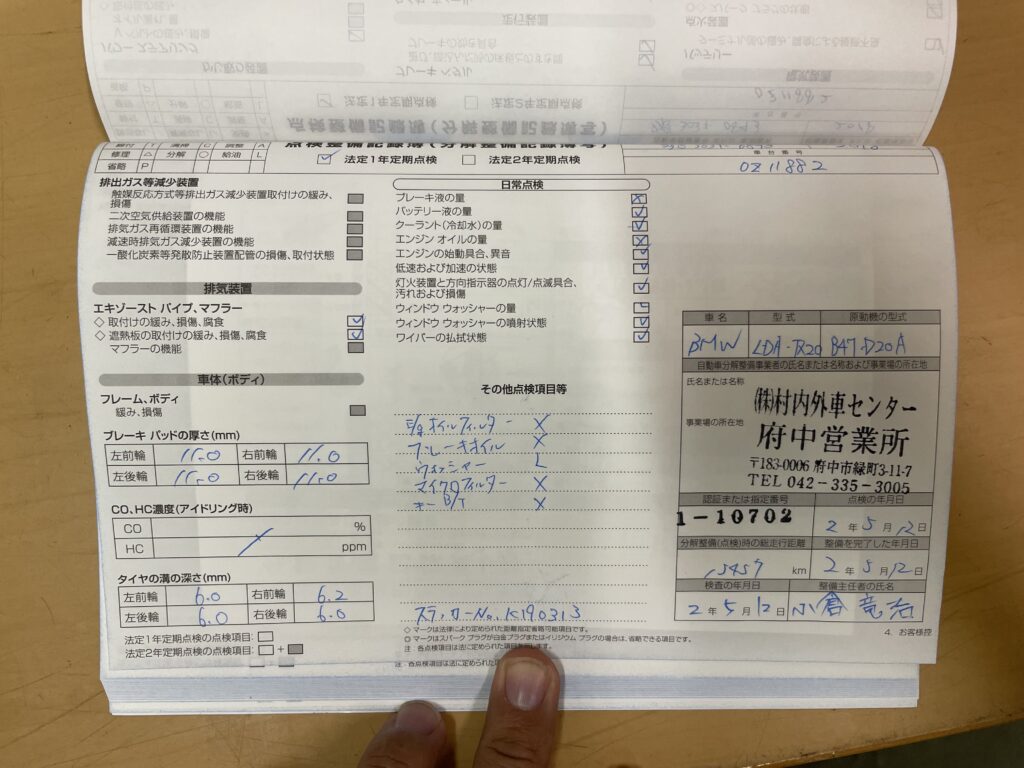 点検整備記録簿(分解整備記録簿写)
修理 △ 分解 ○ 給油 L
省略 P
法定1年定期点検 法定2年定期点検
車台番号
0Z11882
排出ガス等減少装置
触媒反応方式等排出ガス減少装置取付けの緩み、
損傷
二次空気供給装置の機能
排気ガス再循環装置の機能
減速時排気ガス減少装置の機能
一酸化炭素等発散防止装置配管の損傷、取付状態
排気装置
エキゾースト パイプ、マフラー
◇ 取付けの緩み、損傷、腐食
◇ 遮熱板の取付けの緩み、損傷、腐食
マフラーの機能
車体(ボディ)
フレーム、ボディ
緩み、損傷
ブレーキ パッドの厚さ(mm)
左前輪 11.0 右前輪 11.0
左後輪 11.0 右後輪 11.0
CO、HC濃度(アイドリング時)
CO %
HC ppm
タイヤの溝の深さ(mm)
左前輪 6.0 右前輪 6.2
左後輪 6.0 右後輪 6.0
法定1年定期点検の点検項目:
法定2年定期点検の点検項目: +
日常点検
ブレーキ液の量
バッテリー液の量
クーラント(冷却水)の量
エンジン オイルの量
エンジンの始動具合、異音
低速および加速の状態
灯火装置と方向指示器の点灯/点滅具合、
汚れおよび損傷
ウィンドウ ウォッシャーの量
ウィンドウ ウォッシャーの噴射状態
ワイパーの払拭状態
その他点検項目等
E/g オイルフィルター X
ブレーキオイル X
ウォッシャー L
マイクロフィルター X
キーB/T X
ステッカーNo. K190313
◇ マークは法律により定められた距離指定省略可能項目です。
マークはスパーク プラグが白金プラグまたはイリジウム プラグの場合は、省略できる項目です。
注:各点検項目は法に定められた項目を
注:各点検項目は法に定められた項
車名 型式 原動機の型式
BMW LDA-TR20 B47-D20A
自動車分解整備事業者の氏名または名称および事業場の所在地
氏名または名称
(株)村内外車センター
事業場の所在地
府中営業所
〒183-0006 府中市緑町3-11-7
TEL 042-335-3005
認証または指定番号 点検の年月日
1-10702 2年5月12日
分解整備(点検)時の総走行距離 整備を完了した年月日
15457 km 2年5月12日
検査の年月日 整備主任者の氏名
2年5月12日
4. お客様控